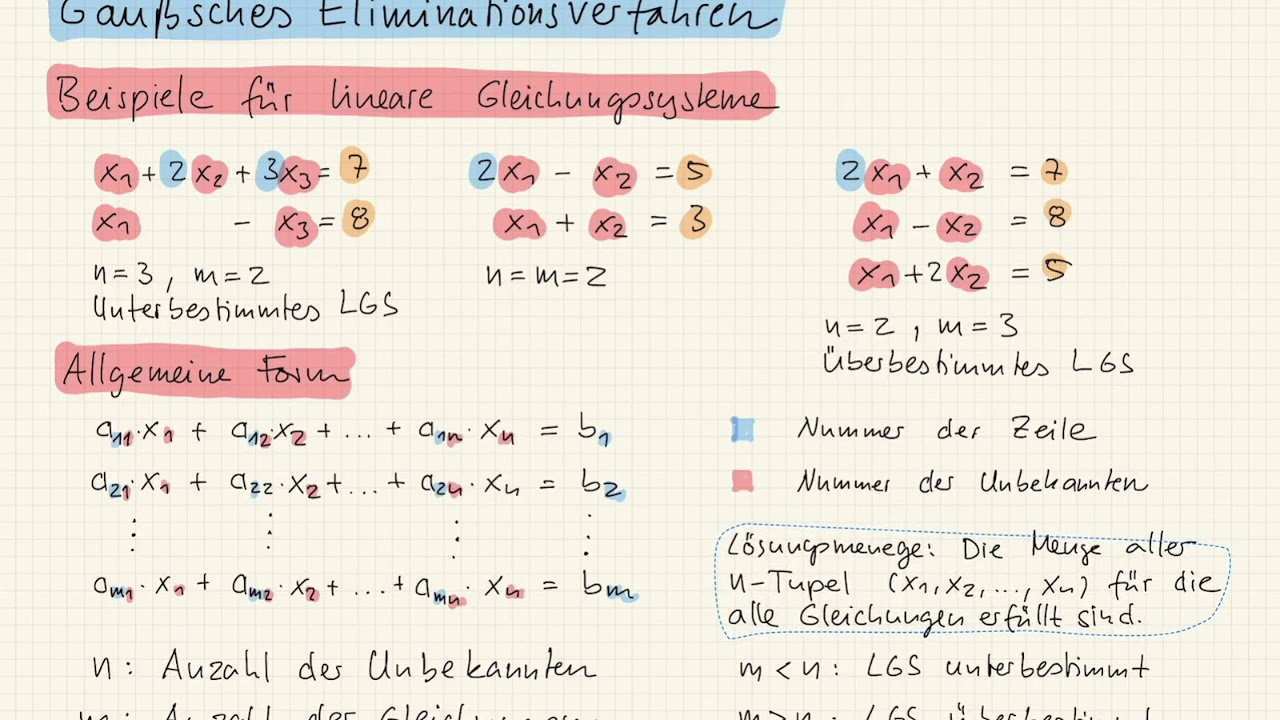 Gaußsches Eliminationsverfahren
Beispiele für lineare Gleichungssysteme
x₁ + 2x₂ + 3x₃ = 7
x₁ - x₃ = 8
n = 3 , m = 2
Unterbestimmtes LGS
2x₁ - x₂ = 5
x₁ + x₂ = 3
n = m = 2
2x₁ + x₂ = 7
x₁ - x₂ = 8
x₁ + 2x₂ = 5
n = 2 , m = 3
Überbestimmtes LGS
Allgemeine Form
a₁₁·x₁ + a₁₂·x₂ + ... + a₁ₙ·xₙ = b₁
a₂₁·x₁ + a₂₂·x₂ + ... + a₂ₙ·xₙ = b₂
⋮ ⋮ ⋮ ⋮
aₘ₁·x₁ + aₘ₂·x₂ + ... + aₘₙ·xₙ = bₘ
Nummer der Zeile
Nummer der Unbekannten
Lösungsmenege: Die Menge aller
n-Tupel (x₁, x₂, ..., xₙ) für die
alle Gleichungen erfüllt sind.
n: Anzahl der Unbekannten
m: Anzahl der Gleichungen
m < n : LGS unterbestimmt
m > n : LGS überbestimmt